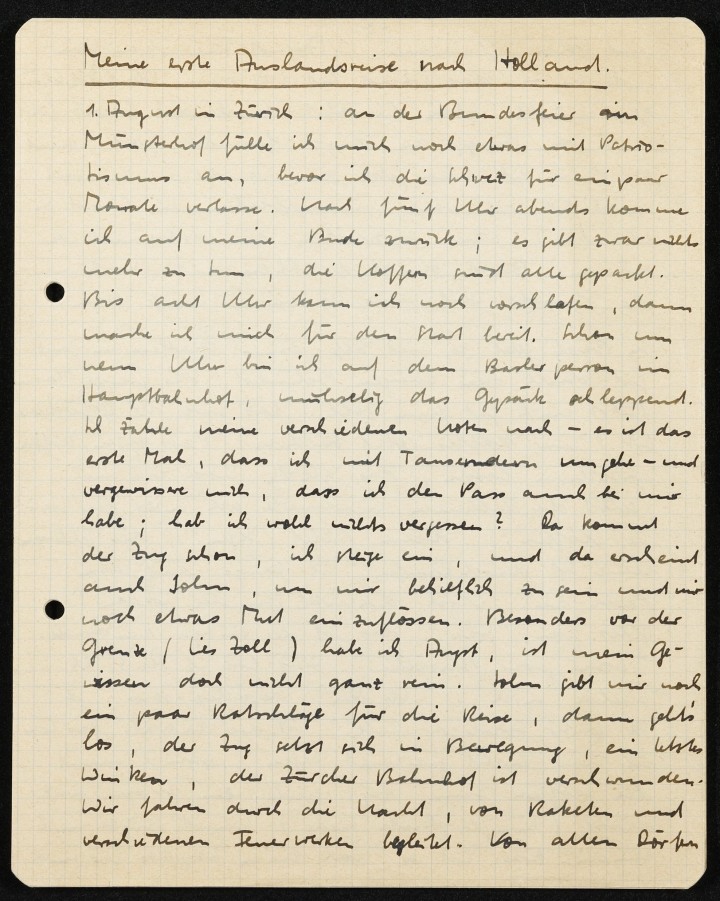 Meine erste Auslandsreise nach Holland.
1. August in Zürich : an der Bundesfeier am
Münsterhof fülle ich mich noch etwas mit Patrio-
tismus an, bevor ich die Schweiz für ein paar
Monate verlasse. Nach fünf Uhr abends komme
ich auf meine Bude zurück ; es gibt zwar nichts
mehr zu tun , die Koffern sind alle gepackt.
Bis acht Uhr kann ich noch vorschlafen , dann
mache ich mich für den Start bereit. Schon um
neun Uhr bin ich auf dem Basler perron im
Hauptbahnhof , mühselig das Gepäck schleppend.
Ich zähle meine verschiedenen Noten nach – es ist das
erste Mal , dass ich mit Tausendern umgehe – und
vergewissere mich , dass ich den Pass auch bei mir
habe ; hab ich wohl nichts vergessen ? Da kommt
der Zug schon , ich steige ein , und da erscheint
auch John , um mir behilflich zu sein und mir
noch etwas Mut einzuflössen. Besonders vor der
Grenze ( lies Zoll ) habe ich Angst , ist mein Ge-
wissen doch nicht ganz rein. John gibt mir noch
ein paar Ratschläge für die Reise , dann geht's
los , der Zug setzt sich in Bewegung , ein letztes
Winken , der Zürcher Bahnhof ist verschwunden.
Wir fahren durch die Nacht , von Raketen und
verschiedenen Feuerwerken begleitet. Von allen Dörfern